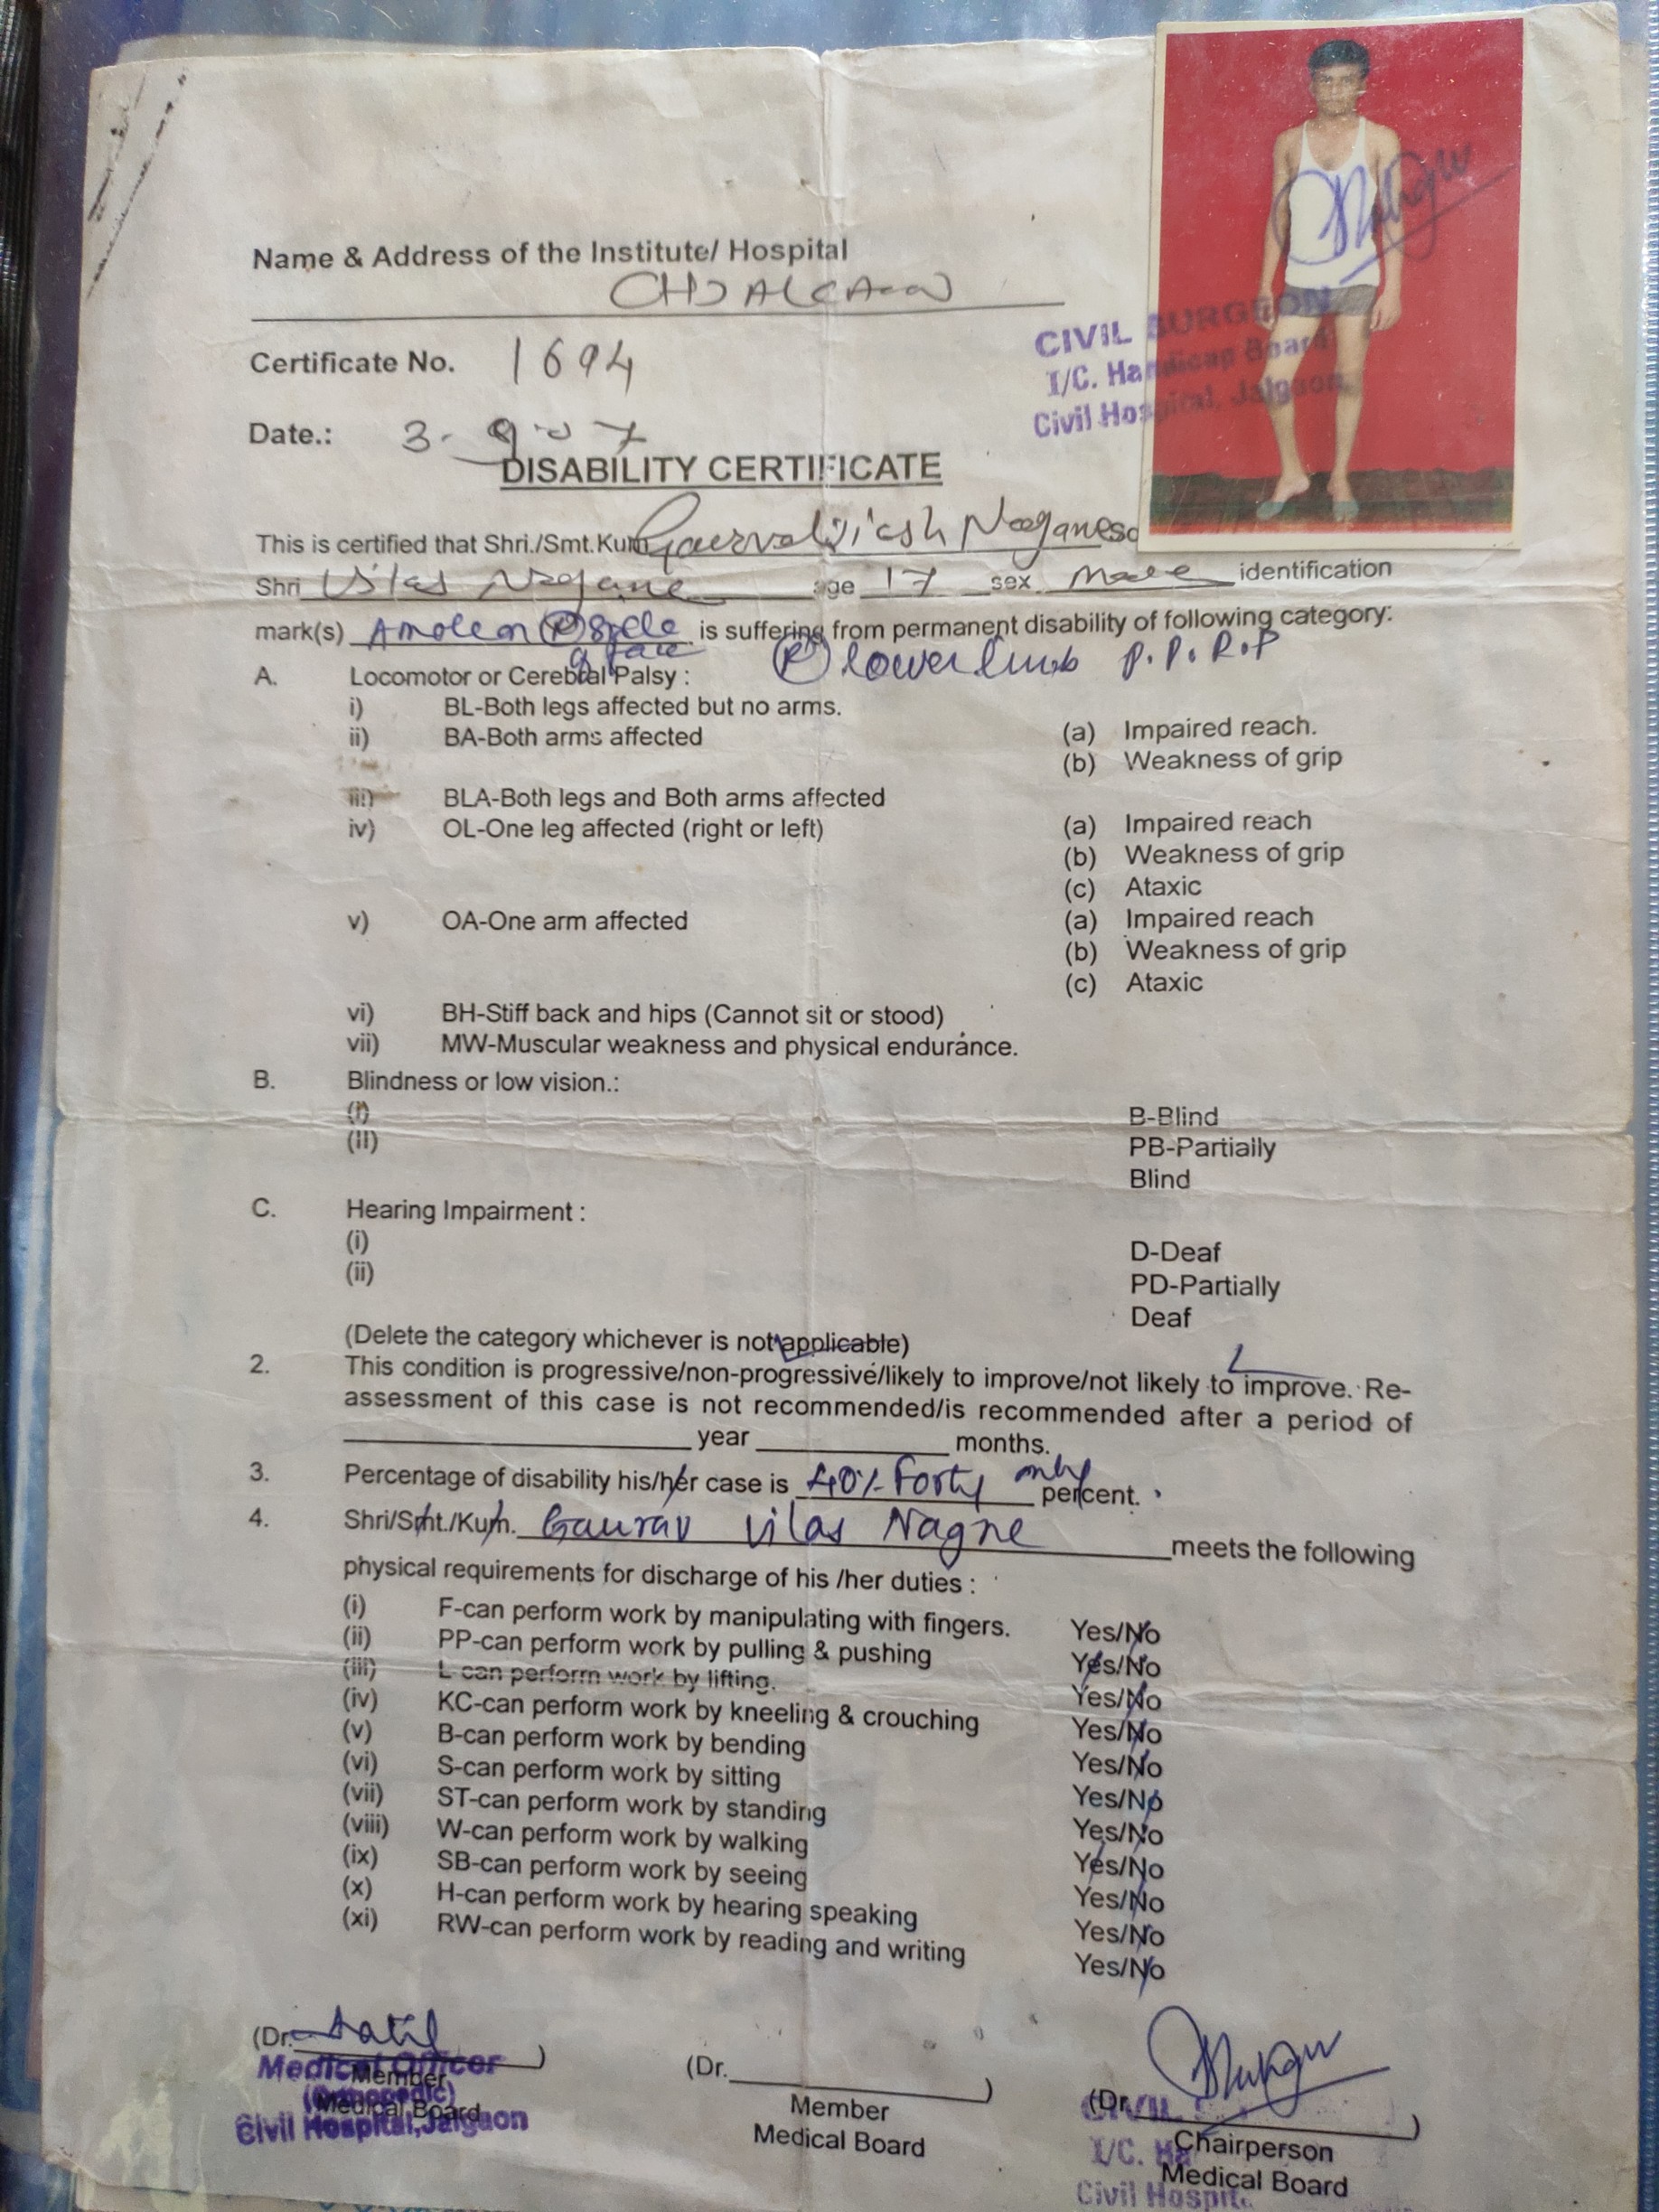 Name & Address of the Institute/ Hospital
CH JALGAON
Certificate No. 1694
CIVIL SURGEON
I/C. Handicap Board
Civil Hospital, Jalgaon.
Date.: 3-9-07
DISABILITY CERTIFICATE
This is certified that Shri./Smt.Kum
Shri Vilas Nagane age 17 sex male identification
mark(s) A mole on (R) side is suffering from permanent disability of following category:
of face (R) lower limb P.P.R.P
A. Locomotor or Cerebral Palsy :
i) BL-Both legs affected but no arms.
ii) BA-Both arms affected (a) Impaired reach.
(b) Weakness of grip
iii) BLA-Both legs and Both arms affected
iv) OL-One leg affected (right or left) (a) Impaired reach
(b) Weakness of grip
(c) Ataxic
v) OA-One arm affected (a) Impaired reach
(b) Weakness of grip
(c) Ataxic
vi) BH-Stiff back and hips (Cannot sit or stood)
vii) MW-Muscular weakness and physical endurance.
B. Blindness or low vision.:
(i) B-Blind
(II) PB-Partially
Blind
C. Hearing Impairment :
(i) D-Deaf
(ii) PD-Partially
Deaf
(Delete the category whichever is not applicable)
2. This condition is progressive/non-progressive/likely to improve/not likely to improve. Re-
assessment of this case is not recommended/is recommended after a period of
year months.
3. Percentage of disability his/her case is 40% Forty only percent.
4. Shri/Smt./Kum. Gaurav Vilas Nagne meets the following
physical requirements for discharge of his /her duties :
(i) F-can perform work by manipulating with fingers. Yes/No
(ii) PP-can perform work by pulling & pushing Yes/No
(iii) L-can perform work by lifting. Yes/No
(iv) KC-can perform work by kneeling & crouching Yes/No
(v) B-can perform work by bending Yes/No
(vi) S-can perform work by sitting Yes/No
(vii) ST-can perform work by standing Yes/No
(viii) W-can perform work by walking Yes/No
(ix) SB-can perform work by seeing Yes/No
(x) H-can perform work by hearing speaking Yes/No
(xi) RW-can perform work by reading and writing Yes/No
(Dr. )
Medical Officer
Member
(Orthopedic)
Medical Board
Civil Hospital, Jalgaon
(Dr. )
Member
Medical Board
(Dr. )
CIVIL
Chairperson
I/C. Ha
Medical Board
Civil Hospit